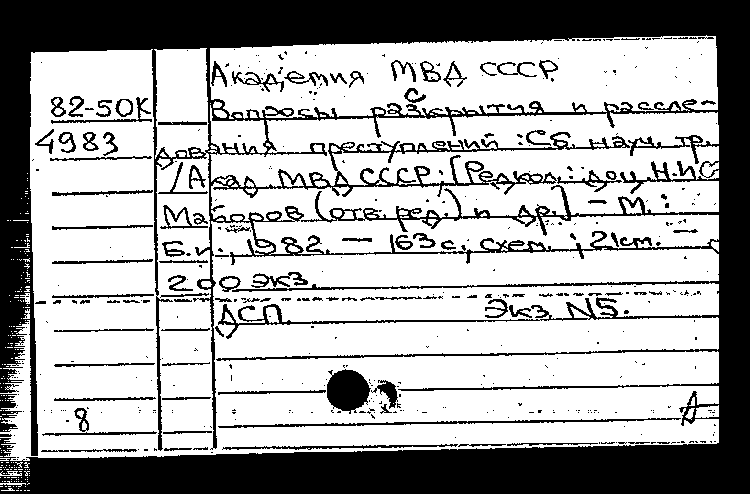 Академия МВД СССР
82-5ОК Вопросы раскрытия и рассле-
4983 дования преступлений : Сб. науч. тр.
/Акад. МВД СССР; [Редкол.: доц. Н.И.
Майоров (отв. ред.) и др.] – М. :
Б.и., 1982. – 163 с., схем. ; 21 см. –
200 экз.
ДСП. Экз N5.
8 А